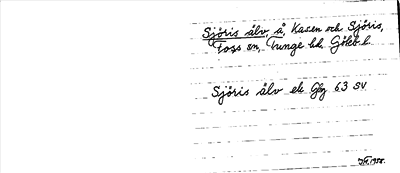 Sjöris älv å, Kasen och Sjöris,
Foss sn, Tunge hd. Gbg o B l.
Sjöris älv ek Gbg 63 SV
1958.